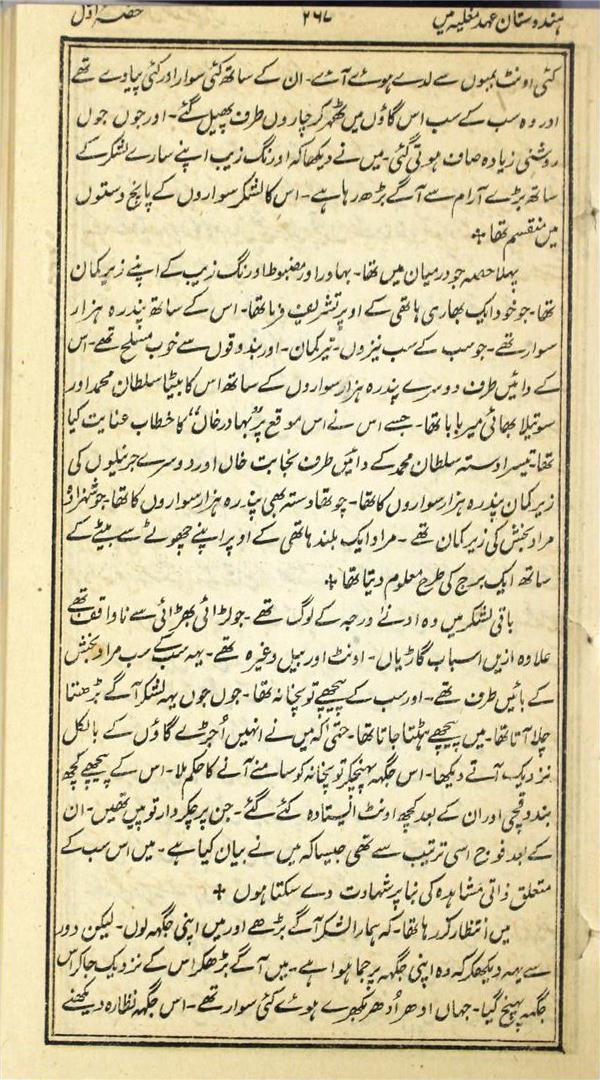 ہندوستان عہد مغلیہ میں ۲۶۷ حصہ اول
کئی اونٹ بموں سے لدے ہوئے آئے۔ ان کے ساتھ کئی سوار اور کئی پیادے تھے
اور وہ سب کے سب اس گاؤں میں ٹھہر کر چاروں طرف پھیل گئے۔ اور جوں جوں
روشنی زیادہ صاف ہوتی گئی۔ میں نے دیکھا کہ اورنگ زیب اپنے سارے لشکر کے
ساتھ بڑے آرام سے آگے بڑھ رہا ہے۔ اس کا لشکر سواروں کے پانچ دستوں
میں منقسم تھا ٭
پہلا حصہ جو درمیان میں تھا۔ بہادر اور مضبوط اورنگ زیب کے اپنے زیر کمان
تھا۔ جو خود ایک بھاری ہاتھی کے اوپر تشریف فرما تھا۔ اس کے ساتھ پندرہ ہزار
سوار تھے۔ جو سب کے سب نیزوں۔ تیر کمان۔ اور بندوقوں سے خوب مسلح تھے۔ اس
کے دائیں طرف دوسرے پندرہ ہزار سواروں کے ساتھ اس کا بیٹا سلطان محمد اور
سوتیلا بھائی میر بابا تھا۔ جسے اس نے اس موقع پر ”بہادر خان“ کا خطاب عنایت کیا
تھا۔ تیسرا دستہ سلطان محمد کے دائیں طرف نجابت خاں اور دوسرے جرنیلوں کی
زیر کمان پندرہ ہزار سواروں کا تھا۔ چوتھا دستہ بھی پندرہ ہزار سواروں کا تھا۔ جو شہزادہ
مراد بخش کی زیر کمان تھے۔ مراد ایک بلند ہاتھی کے اوپر اپنے چھوٹے سے بیٹے کے
ساتھ ایک برج کی طرح معلوم دیتا تھا ٭
باقی لشکر میں وہ ادنےٰ درجہ کے لوگ تھے۔ جو لڑائی بھڑائی سے ناواقف تھے
علاوہ ازیں اسباب گاڑیاں۔ اونٹ اور بیل وغیرہ تھے۔ یہہ سب کے سب مراد بخش
کے بائیں طرف تھے۔ اور سب کے پیچھے توپخانہ تھا۔ جوں جوں یہہ لشکر آگے بڑھتا
چلا آتا تھا۔ میں پیچھے ہٹتا جاتا تھا۔ حتیٰ کہ میں نے انہیں اُجڑے گاؤں کے بالکل
نزدیک آتے دیکھا۔ اس جگہہ پہنچکر توپخانہ کو سامنے آنے کا حکم ملا۔ اس کے پیچھے کچھ
بندوقچی اور ان کے بعد کچھ اونٹ ایستادہ کئے گئے۔ جن پر چکردار توپیں تھیں۔ ان
کے بعد فوج اسی ترتیب سے تھی جیسا کہ میں نے بیان کیا ہے۔ میں اس سب کے
متعلق ذاتی مشاہدہ کی بنا پر شہادت دے سکتا ہوں ٭
میں انتظار کر رہا تھا۔ کہ ہمارا لشکر آگے بڑھے اور میں اپنی جگہہ لوں۔ لیکن دور
سے یہہ دیکھکر کہ وہ اپنی جگہہ پر جما ہوا ہے۔ میں آگے بڑھکر اس کے نزدیک جا کر اس
جگہہ پہنچ گیا۔ جہاں ادھر اُدھر بکھرے ہوئے کئی سوار تھے۔ اس جگہہ نظارہ دیکھنے